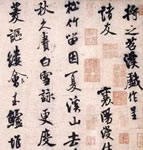 将之苕溪戲作呈
諸友
襄陽漫仕
松竹留因夏溪山去
秋久賡白雪詠更度
菱謳縷會玉鱸